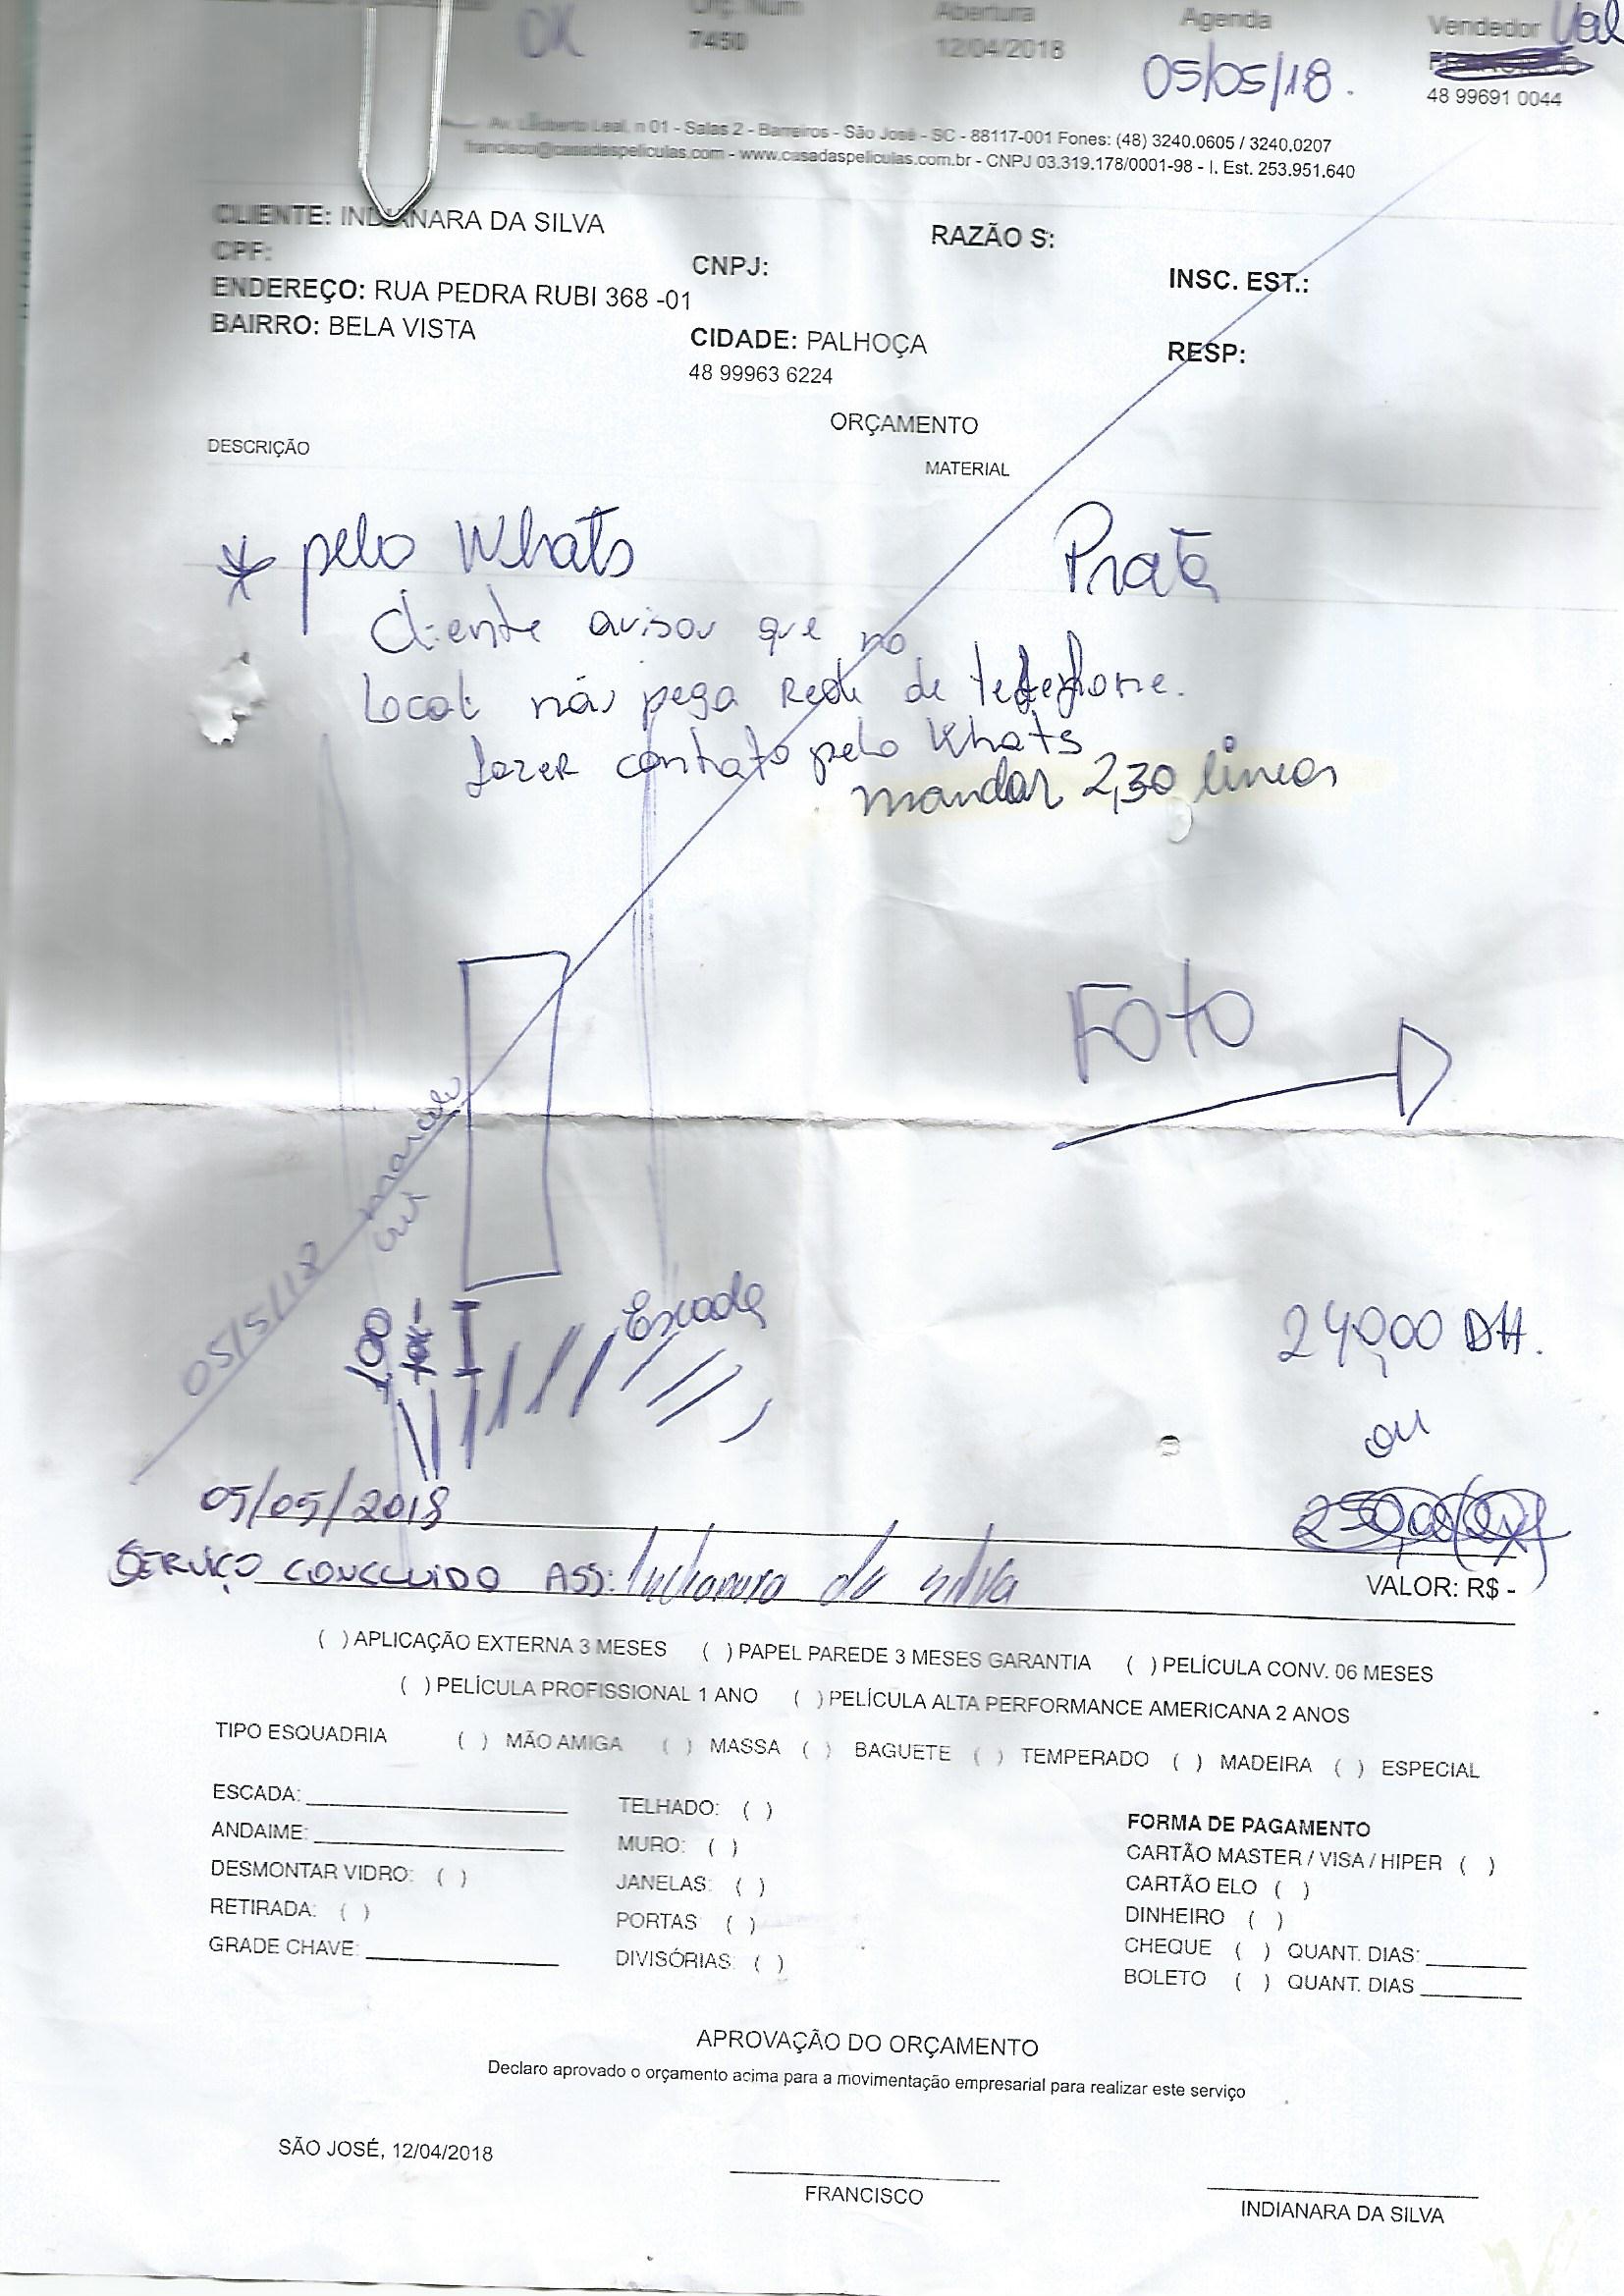 OK
Orç. Num
7450
Abertura
12/04/2018
Agenda
05/05/18.
Vendedor Val
48 99691 0044
Av. Leoberto Leal, n 01 - Salas 2 - Barreiros - São José - SC - 88117-001 Fones: (48) 3240.0605 / 3240.0207
francisco@casadaspeliculas.com - www.casadaspeliculas.com.br - CNPJ 03.319.178/0001-98 - I. Est. 253.951.640
CLIENTE: INDIANARA DA SILVA
RAZÃO S:
CPF:
CNPJ:
INSC. EST.:
ENDEREÇO: RUA PEDRA RUBI 368 -01
BAIRRO: BELA VISTA
CIDADE: PALHOÇA
RESP:
48 99963 6224
ORÇAMENTO
DESCRIÇÃO
MATERIAL
* pelo Whats
Prata
Cliente avisou que no
Local não pega Rede de telefone.
fazer contato pelo Whats
mandar 2,30 linear
Foto
05/5/18 marcelo
1,00
Escada
240,00 DH.
ou
05/05/2018
SERVIÇO CONCLUIDO ASS: Indianara da silva
VALOR: R$ -
( ) APLICAÇÃO EXTERNA 3 MESES ( ) PAPEL PAREDE 3 MESES GARANTIA ( ) PELÍCULA CONV. 06 MESES
( ) PELÍCULA PROFISSIONAL 1 ANO ( ) PELÍCULA ALTA PERFORMANCE AMERICANA 2 ANOS
TIPO ESQUADRIA ( ) MÃO AMIGA ( ) MASSA ( ) BAGUETE ( ) TEMPERADO ( ) MADEIRA ( ) ESPECIAL
ESCADA:
ANDAIME:
DESMONTAR VIDRO: ( )
RETIRADA: ( )
GRADE CHAVE:
TELHADO: ( )
MURO: ( )
JANELAS: ( )
PORTAS ( )
DIVISÓRIAS: ( )
FORMA DE PAGAMENTO
CARTÃO MASTER / VISA / HIPER ( )
CARTÃO ELO ( )
DINHEIRO ( )
CHEQUE ( ) QUANT. DIAS:
BOLETO ( ) QUANT. DIAS
APROVAÇÃO DO ORÇAMENTO
Declaro aprovado o orçamento acima para a movimentação empresarial para realizar este serviço
SÃO JOSÉ, 12/04/2018
FRANCISCO
INDIANARA DA SILVA